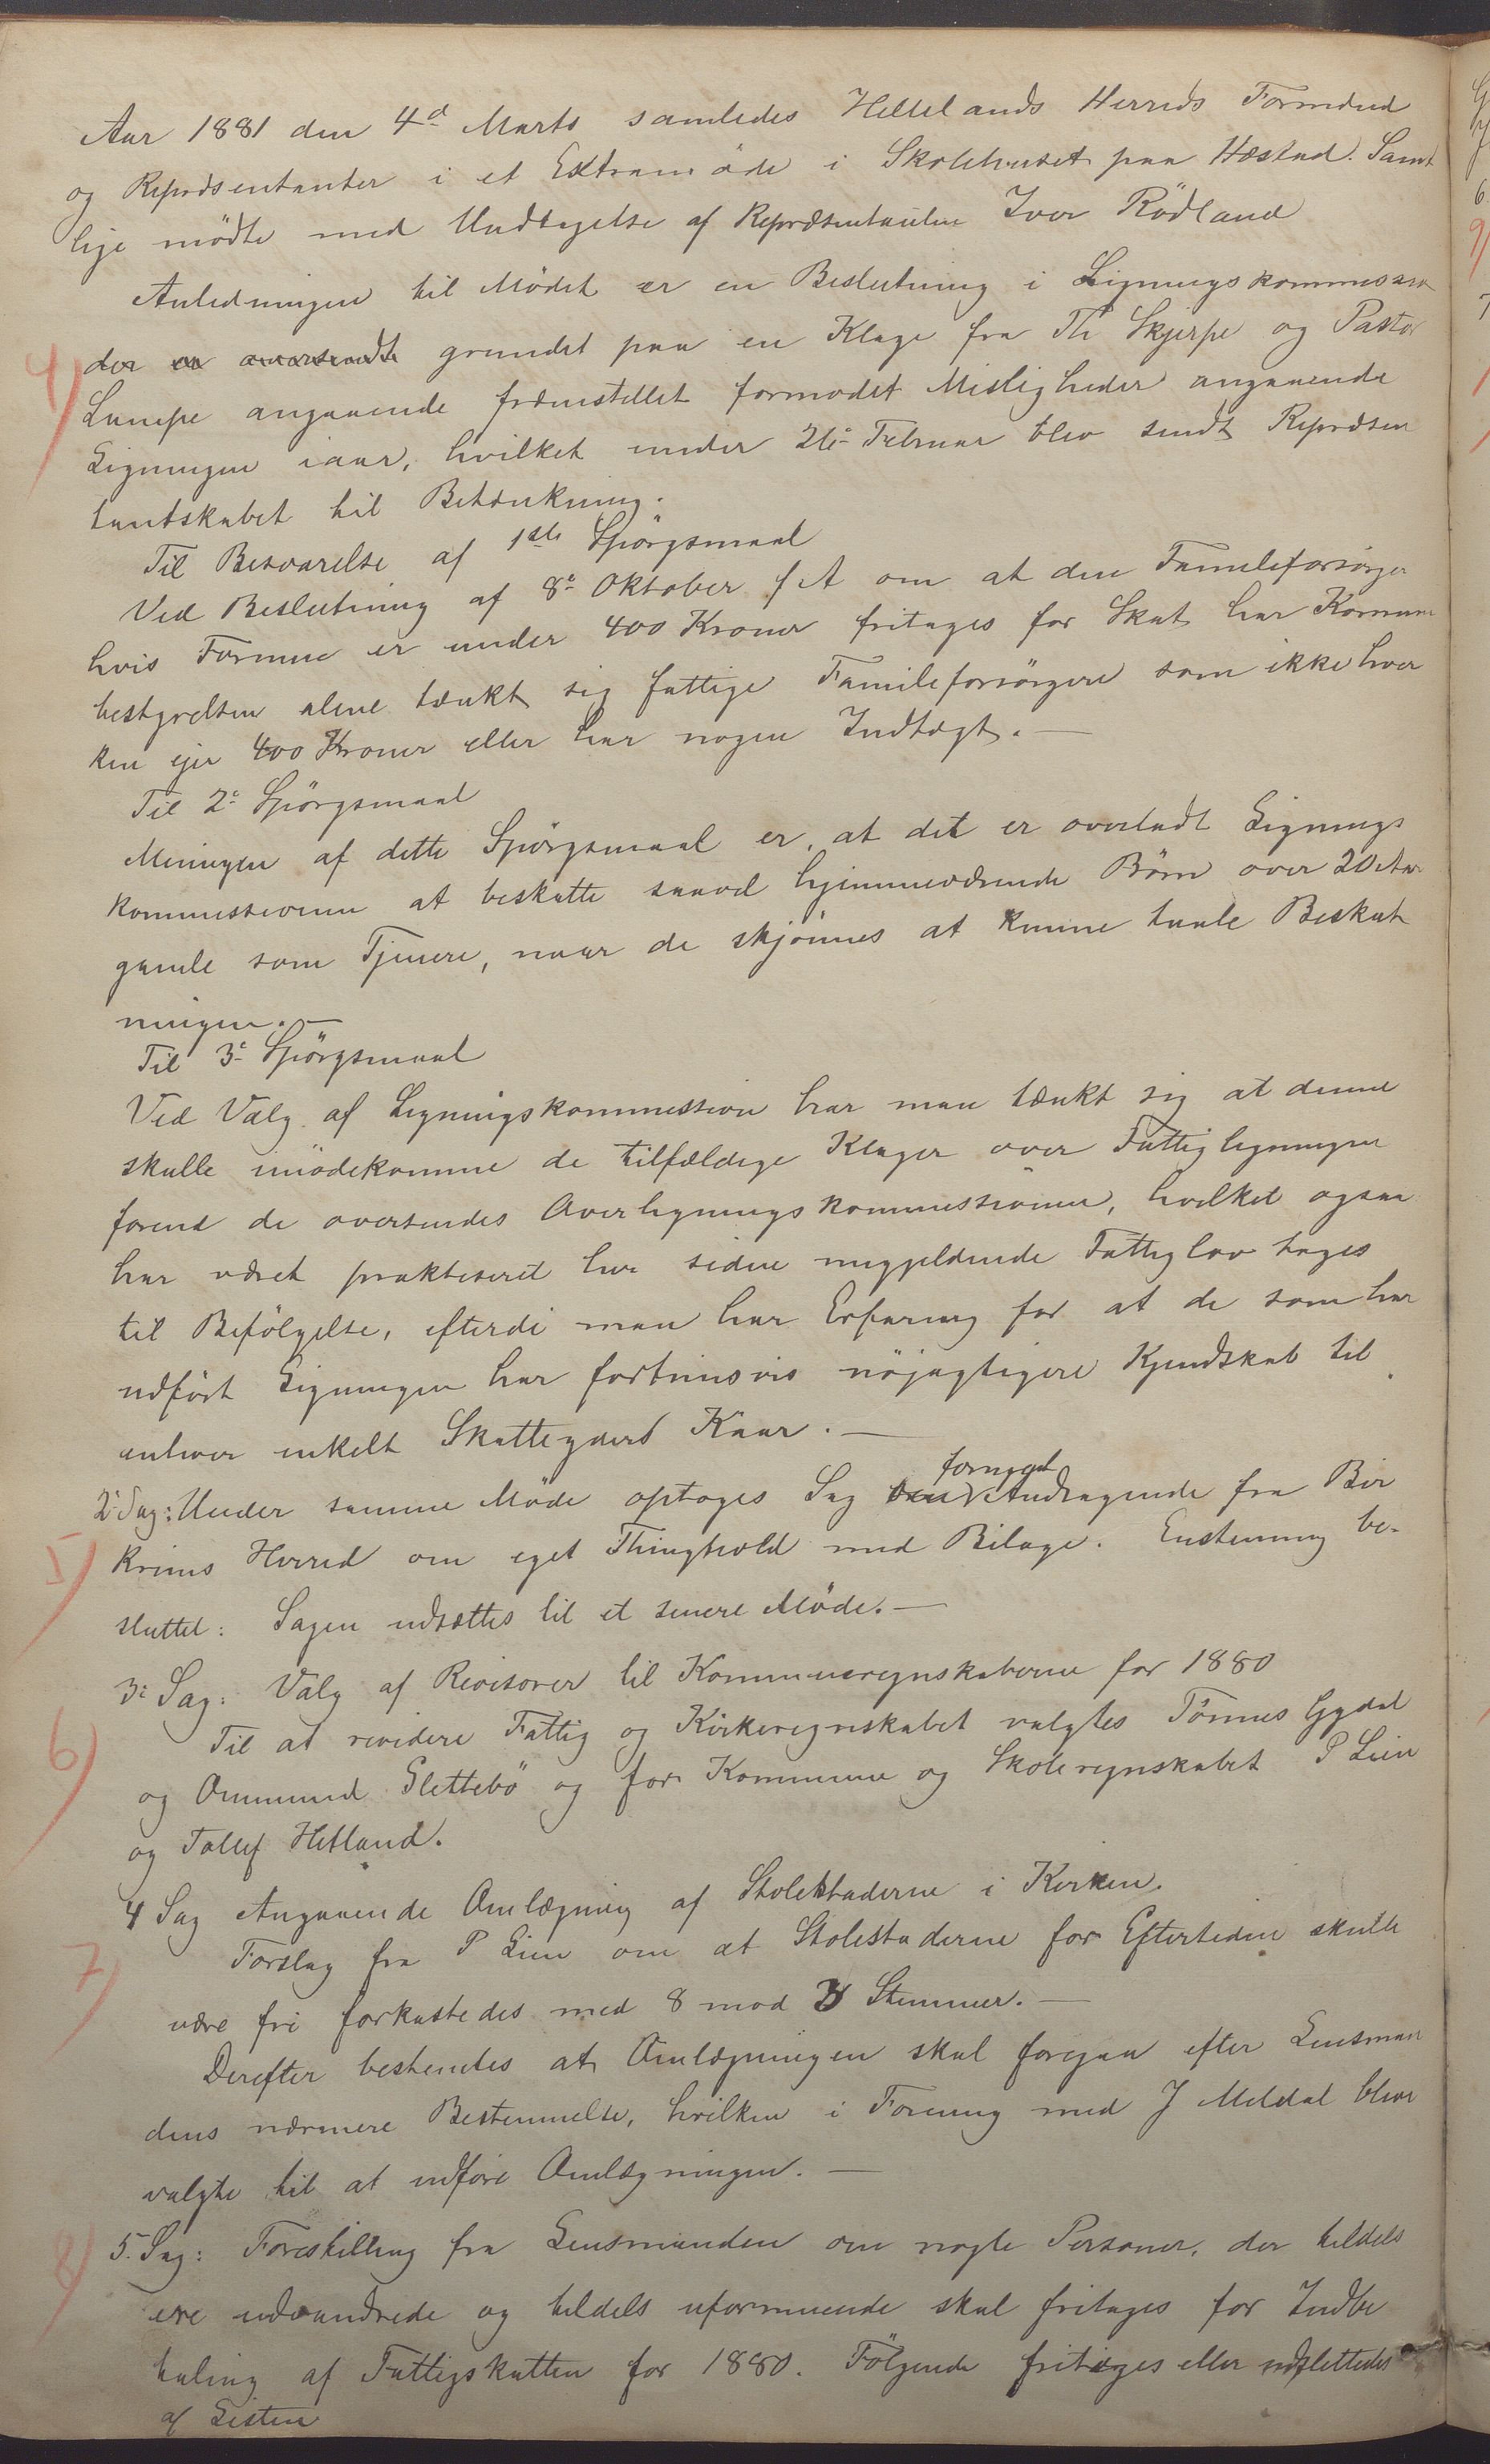 Aar 1881 den 4d Marts samledes Hellelands Herreds Formænd
og Repræsentanter i et Extramöde i Skolehuset paa Hæstad. Samt
lige mödte med Undtagelse af Repræsentanten Iver Rödland
Anledningen til Mödet er en Beslutning i Ligningskommissio
4) der en grundet paa en Klage fra Th Skjerpe og Pastor
Lampe angaaende fremstillet formodet Misligheder angaaende
Ligningen iaar, hvilket under 26de Februar blev sendt Repræsen
tantskabet til Betænkning.
Til Besvarelse af 1ste Spörgsmaal
Ved Beslutning af 8de Oktober f A om at den Familieforsörger
hvis Formue er under 400 Kroner fritages for Skat har Kommune
bestyrelsen alene tænkt sig fattige Familieforsörgere som ikke hver
ken ejer 400 Kroner eller har nogen Indtægt. —
Til 2de Spörgsmaal
Meningen af dette Spörgsmaal er, at det er overladt Lignings
kommissionen at beskatte saavel hjemmeværende Börn over 20 Aar
gamle som Tjenere, naar de skjönnes at kunne taale Beskat
ningen. —
Til 3de Spörgsmaal
Ved Valg af Ligningskommission har man tænkt sig at denne
skulle imödekomme de tilfældige Klager over Fattigligningen
forend de oversendes Overligningskommissionen, hvilket ogsaa
har været praktiseret her siden nugjeldende Fattiglov toges
til Befölgelse, efterdi man har Erfaring for at de som har
udfört Ligningen har fortrinsvis nöjagtigere Kjendskab til
enhver enkelt Skatteyders Kaar. —
fornyet
2de Sag: Under samme Möde optoges Sag Andragende fra Bir
5) krims Herred om eget Thinghold med Bilage. Enstemmig be-
sluttet: Sagen udsættes til et senere Möde. —
3de Sag: Valg af Revisorer til Kommuneregnskaberne for 1880
6) Til at revidere Fattig og Kirkeregnskabet valgtes Tönnes Gydal
og Ommund Slettebö og for Kommune og Skoleregnskabet P Lien
og Tollef Hetland.
4 Sag Angaaende Omlægning af Stolestaderne i Kirken.
7) Forslag fra P Lien om at Stolestaderne for Eftertiden skulle
være fri forkastedes med 8 mod 3 Stemmer. —
Derefter bestemtes at Omlægningen skal foregaa efter Lensman
dens nærmere Bestemmelse, hvilken i Forening med J Meldal bleve
valgte til at udföre Omlægningen. —
8) 5. Sag: Forestilling fra Lensmanden om nogle Personer, der tildels
ere udvandrede og tildels uformuende skal fritages for Indbe
taling af Fattigskatten for 1880. Fölgende fritoges eller udslettedes
af Listen